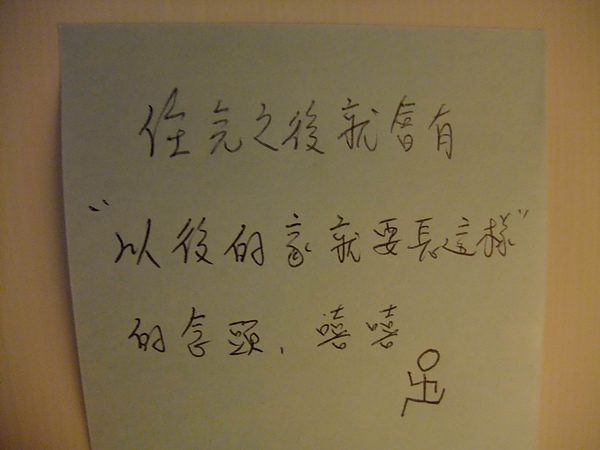 住完之後就會有
"以後的家就要長這樣"
的念頭,嘻嘻